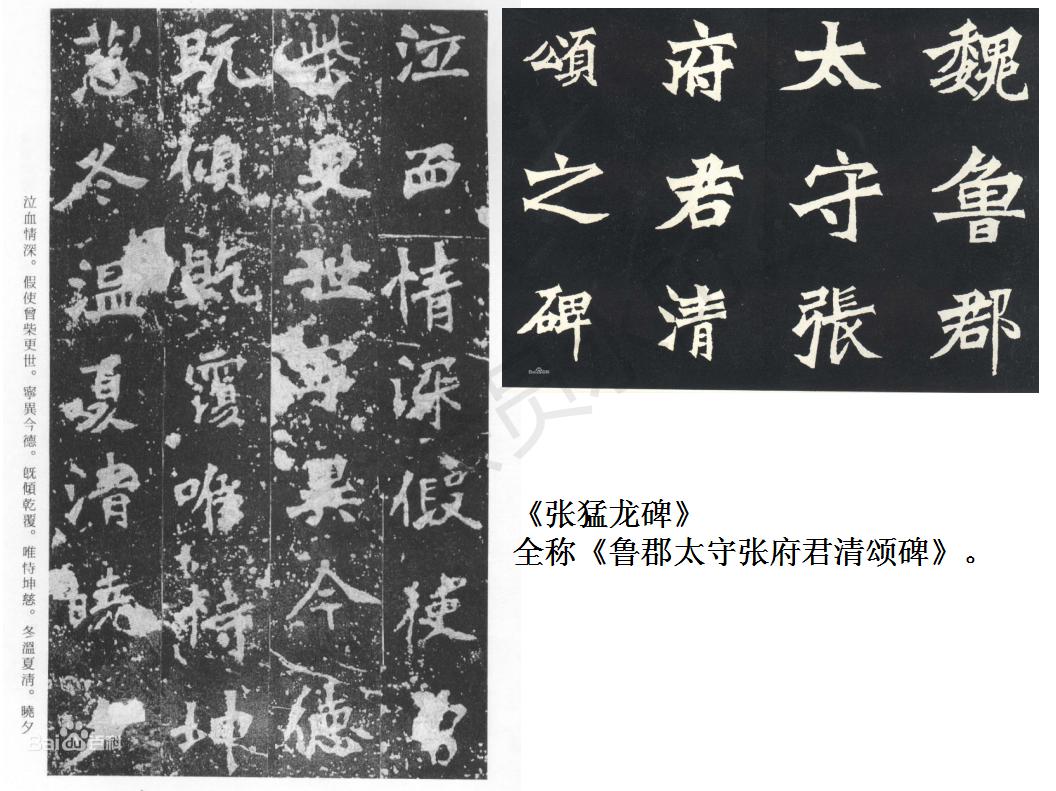 泣血情深假使曾
柴更世寧異今德
既傾乾覆唯恃坤
慈冬溫夏清曉夕
泣血情深。假使曾柴更世。寧異今德。旣傾乾覆。唯恃坤慈。冬溫夏清。曉夕
Baidu百科
魏魯郡
太守張
府君清
頌之碑
Baidu百科
《张猛龙碑》
全称《鲁郡太守张府君清颂碑》。